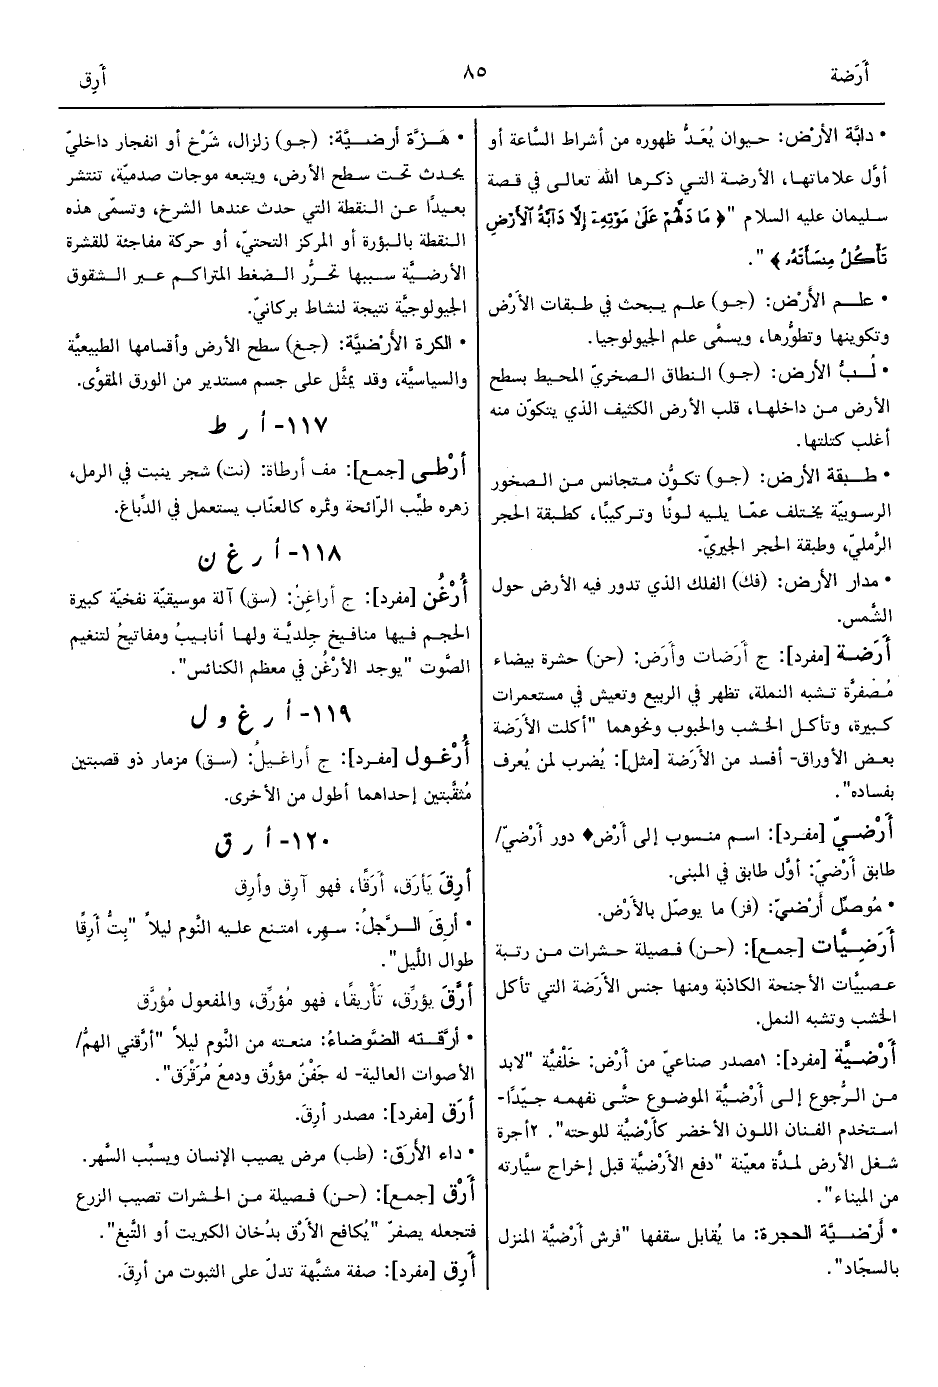 أَرَضة
٨٥
أَرِق
• دابَّة الأرْض: حيوان يُعَدُّ ظهوره من أشراط السَّاعة أو
أوَّل علاماتها، الأرضة التي ذكرها الله تعالى في قصة
سليمان عليه السلام "﴿ مَا دَلَّهُمْ عَلَىٰ مَوْتِهِۦٓ إِلَّا دَآبَّةُ ٱلْأَرْضِ
تَأْكُلُ مِنسَأَتَهُۥ ﴾ ".
• علم الأَرْض: (جو) علم يبحث في طبقات الأَرْض
وتكوينها وتطوُّرها، ويسمَّى علم الجيولوجيا.
• لُبُّ الأرض: (جو) النطاق الصخريّ المحيط بسطح
الأرض من داخلها، قلب الأرض الكثيف الذي يتكوّن منه
أغلب كتلتها.
• طبقة الأرض: (جو) تكوُّن متجانس من الصخور
الرسوبيّة يختلف عمّا يليه لونًا وتركيبًا، كطبقة الحجر
الرَّمليّ، وطبقة الحجر الجيريّ.
• مدار الأرض: (فك) الفلك الذي تدور فيه الأرض حول
الشَّمس.
أَرَضة [مفرد]: ج أَرَضات وأَرَض: (حن) حشرة بيضاء
مُصفرَّة تشبه النملة، تظهر في الربيع وتعيش في مستعمرات
كبيرة، وتأكل الخشب والحبوب ونحوهما "أكلت الأَرَضة
بعض الأوراق- أفسد من الأَرَضة [مثل]: يُضرب لمن يُعرف
بفساده".
أَرْضيّ [مفرد]: اسم منسوب إلى أَرْض♦ دور أَرْضيّ/
طابق أَرْضيّ: أوَّل طابق في المبنى.
• مُوصل أَرْضيّ: (فز) ما يوصّل بالأَرْض.
أَرَضِيَّات [جمع]: (حن) فصيلة حشرات من رتبة
عصبيَّات الأجنحة الكاذبة ومنها جنس الأَرَضة التي تأكل
الخشب وتشبه النمل.
أَرْضيَّة [مفرد]: ١مصدر صناعيّ من أَرْض: خَلْفيَّة "لابد
من الرُّجوع إلى أَرْضيَّة الموضوع حتَّى نفهمه جيّدًا-
استخدم الفنان اللون الأخضر كأَرْضيَّة للوحته". ٢أجرة
شغل الأرض لمدَّة معيّنة "دفع الأَرْضيَّة قبل إخراج سيَّارته
من الميناء".
• أَرْضيَّة الحجرة: ما يُقابل سقفها "فرش أَرْضيَّة المنزل
بالسجّاد".
• هَزَّة أرضيَّة: (جو) زلزال، شَرْخ أو انفجار داخليّ
يحدث تحت سطح الأرض، ويتبعه موجات صدميّة، تنتشر
بعيدًا عن النقطة التي حدث عندها الشرخ، وتسمَّى هذه
النقطة بالبؤرة أو المركز التحتيّ، أو حركة مفاجئة للقشرة
الأرضيَّة سببها تحرُّر الضغط المتراكم عبر الشقوق
الجيولوجيَّة نتيجة لنشاط بركانيّ.
• الكرة الأَرْضيَّة: (جغ) سطح الأرض وأقسامها الطبيعيَّة
والسياسيَّة، وقد يمثَّل على جسم مستدير من الورق المقوَّى.
١١٧- أ ر ط
أَرْطى [جمع]: مف أرطاة: (نت) شجر ينبت في الرمل،
زهره طيِّب الرّائحة وثمره كالعنّاب يستعمل في الدِّباغ.
١١٨- أ ر غ ن
أُرْغُن [مفرد]: ج أراغِنُ: (سق) آلة موسيقيّة نفخيّة كبيرة
الحجم فيها منافيخ جِلديَّة ولها أنابيبُ ومفاتيحُ لتنغيم
الصَّوت "يوجد الأرْغُن في معظم الكنائس".
١١٩- أ ر غ و ل
أُرْغُول [مفرد]: ج أراغيلُ: (سق) مزمار ذو قصبتين
مُثقَّبتين إحداهما أطول من الأخرى.
١٢٠- أ ر ق
أرِقَ يَأرَق، أرَقًا، فهو آرِق وأرِق
• أرِقَ الرَّجلُ: سهِر، امتنع عليه النَّوم ليلاً "بِتُّ أرِقًا
طوال اللَّيل".
أرَّقَ يؤرِّق، تَأْريقًا، فهو مُؤرِّق، والمفعول مُؤرَّق
• أرَّقته الضَّوضاءُ: منعته من النَّوم ليلاً "أرَّقني الهمُّ/
الأصوات العالية- له جَفْنٌ مؤرَّق ودمعٌ مُرَقْرَق".
أَرَق [مفرد]: مصدر أرِقَ.
• داء الأَرَق: (طب) مرض يصيب الإنسان ويسبِّب السَّهر.
أَرْق [جمع]: (حن) فصيلة من الحشرات تصيب الزرع
فتجعله يصفرّ "يُكافح الأَرْق بدُخان الكبريت أو التَّبغ".
أَرِق [مفرد]: صفة مشبَّهة تدلّ على الثبوت من أرِقَ.